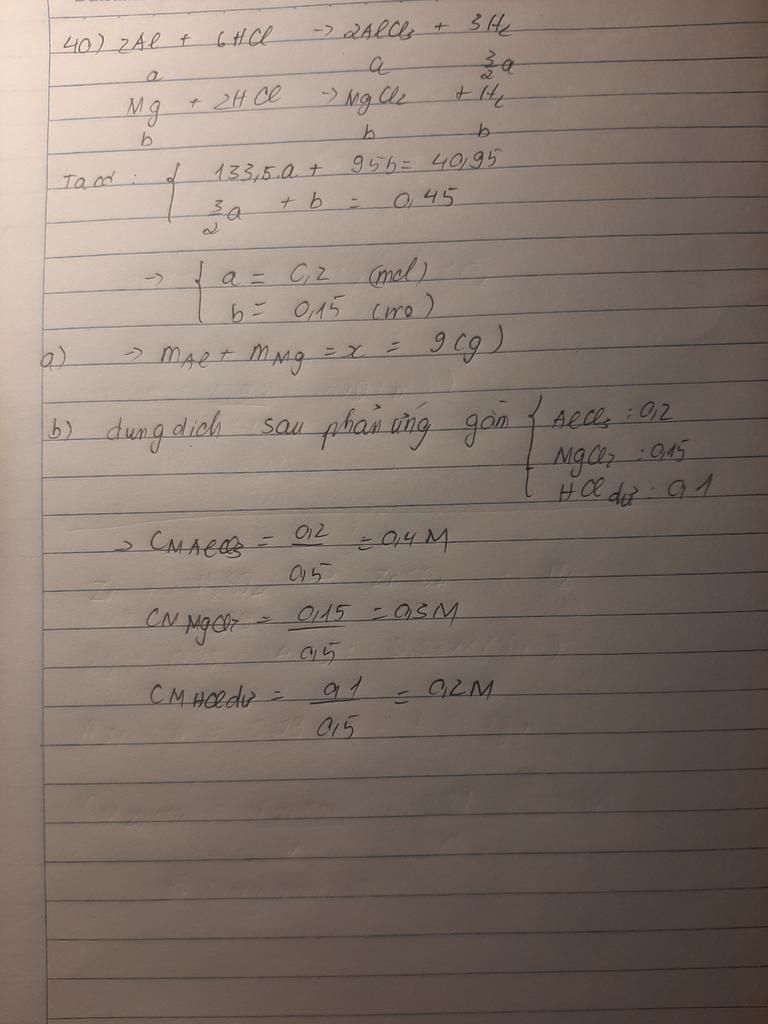 40) 2Al + 6HCl -> 2AlCl3 + 3H2
a a 3/2 a
Mg + 2HCl -> MgCl2 + H2
b b b
Ta có: { 133,5.a + 95b = 40,95
3/2 a + b = 0,45
-> { a = 0,2 (mol)
b = 0,15 (mo)
a) -> mAl + mMg = x = 9(g)
b) dung dich sau phản ứng gồm { AlCl3 : 0,2
MgCl2 : 0,15
HCl dư : 0,1
-> CM AlCl3 = 0,2/0,5 = 0,4M
CM MgCl2 = 0,15/0,5 = 0,3M
CM HCl dư = 0,1/0,5 = 0,2M